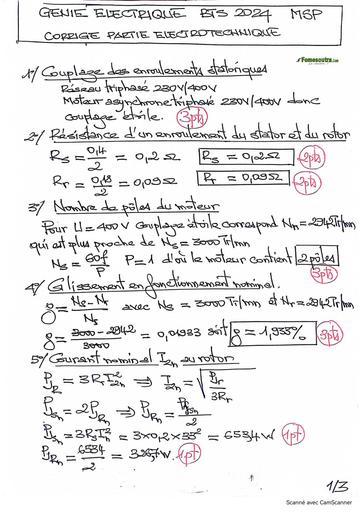 GENIE ELECTRIQUE BTS 2024 MSP
CORRIGE PARTIE ELECTROTECHNIQUE
Fomesoutra.com
1°/ Couplage des enroulements statoriques
Réseau triphasé 230V/400V
Moteur asynchrone triphasé 230V/400V donc
couplage étoile. 3pts
2°/ Résistance d'un enroulement du stator et du rotor
Rs = 0,4/2 = 0,2Ω Rs = 0,2Ω 2pts
Rr = 0,18/2 = 0,09Ω Rr = 0,09Ω 2pts
3°/ Nombre de pôles du moteur
Pour U = 400V couplage étoile correspond Nn = 2942Tr/mn
qui est plus proche de Ns = 3000Tr/mn
Ns = 60f/P P = 1 d'où le moteur contient 2 pôles 3pts
4°/ Glissement en fonctionnement nominal.
g = (Ns - Nr)/Ns avec Ns = 3000Tr/mn et Nr = 2942Tr/mn
g = (3000 - 2942)/3000 = 0,01933 soit g = 1,933% 3pts
5°/ Courant nominal I2n au rotor
PJR = 3RrI²2n ⇒ I2n = √(PJr/3Rr)
PJsn = 2PJRn ⇒ PJRn = PJsn/2
PJsn = 3RsI²n = 3×0,2×33² = 6534W 1pt
PJRn = 6534/2 = 3267W. 1pt
1/3
Scanné avec CamScanner